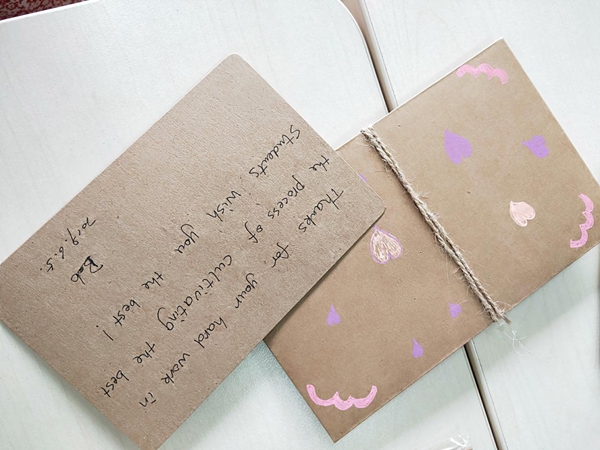 Thanks for your hard work in
the process of cultivating the best
students wish you the best!
Bob
2019.6.5.